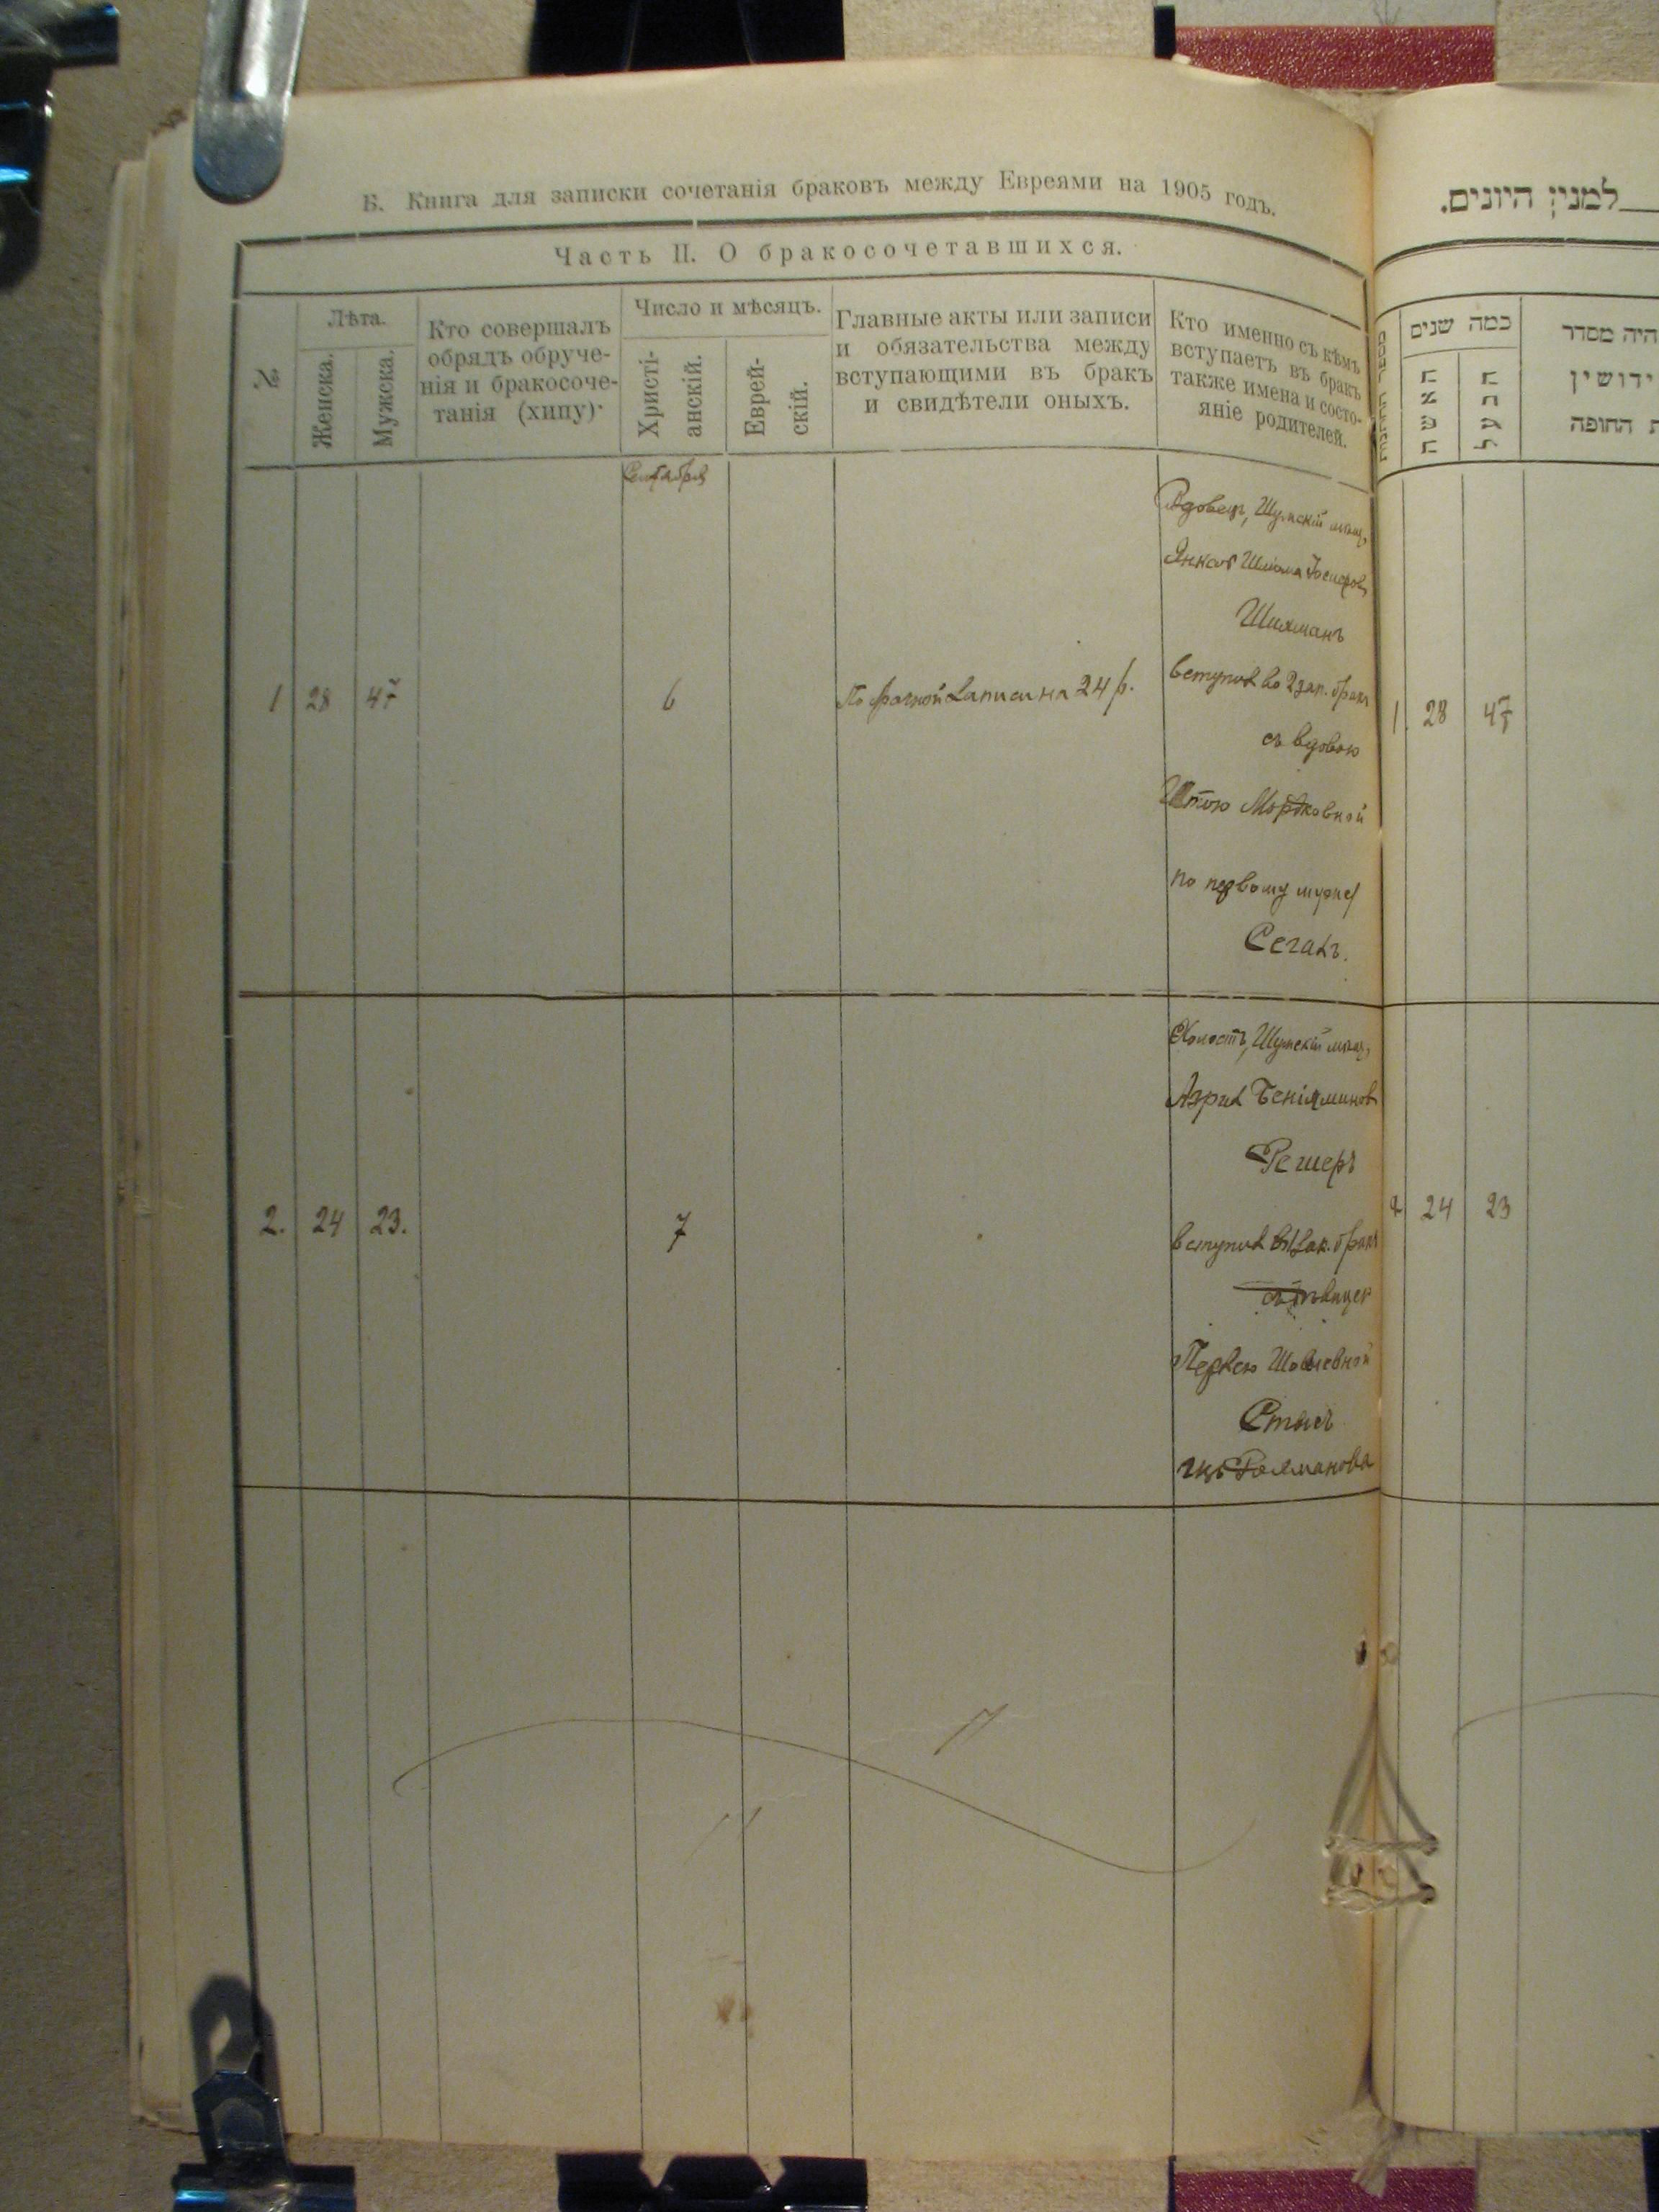 Б. Книга для записки сочетанія браковъ между Евреями на 1905 годъ.
Часть II. О бракосочетавшихся.
№
Лѣта.
Женска.
Мужска.
Кто совершалъ
обрядъ обруче-
нія и бракосоче-
танія (хипу)
Число и мѣсяцъ.
Христі-
анскій.
Еврей-
скій.
Главные акты или записи
и обязательства между
вступающими въ бракъ
и свидѣтели оныхъ.
Кто именно съ кѣмъ
вступаетъ въ бракъ
также имена и состо-
яніе родителей.
Сентября
1 28 47 6
записи на 24 р.
Вдовецъ, Шумскій мѣщ.
Янкель
Шихманъ
вступил во 2 зак. бракъ
съ вдовою
Мордковной
по первому мужу
Сегалъ.
2. 24 23. 7
Холостъ, Шумскій мѣщ.
Азрил Беніяминов
Решеръ
вступил въ 1 зак. бракъ
Перлею
למנין היונים.
כמה שנים
האשה
הבעל
היה מסדר
ידושין
החופה
1. 28 47
2 24 23